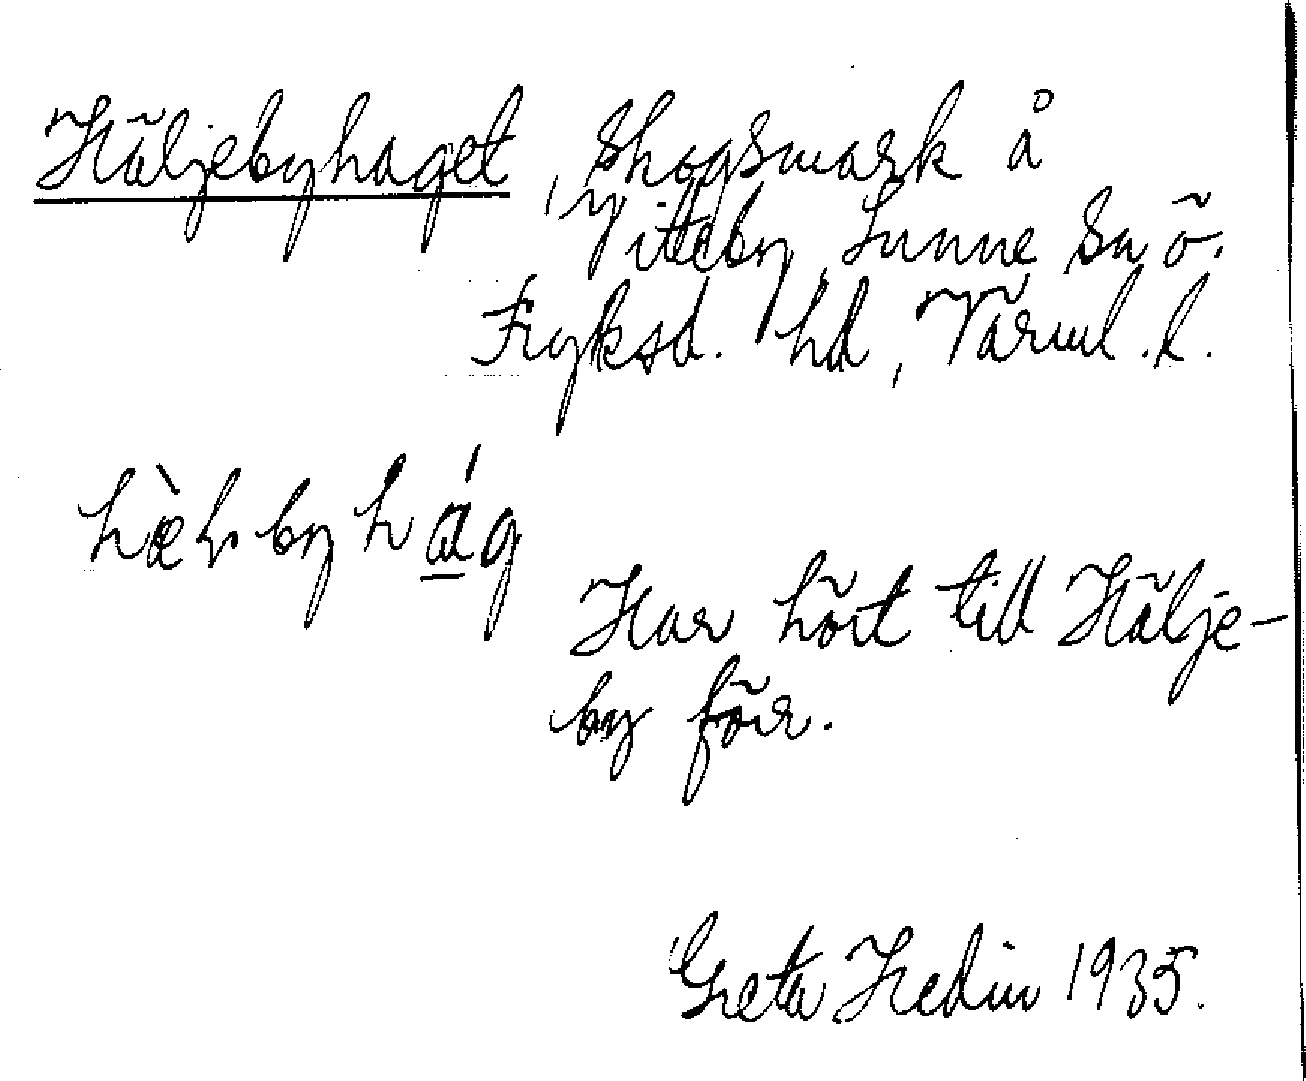 Häljebyhaget, skogsmark å
Yitteby, Sunne sn ö.
Fryksd. hd, Värml. l.
hæ̀lbyhág
Har hört till Hälje-
by förr.
Greta Hedin 1935.